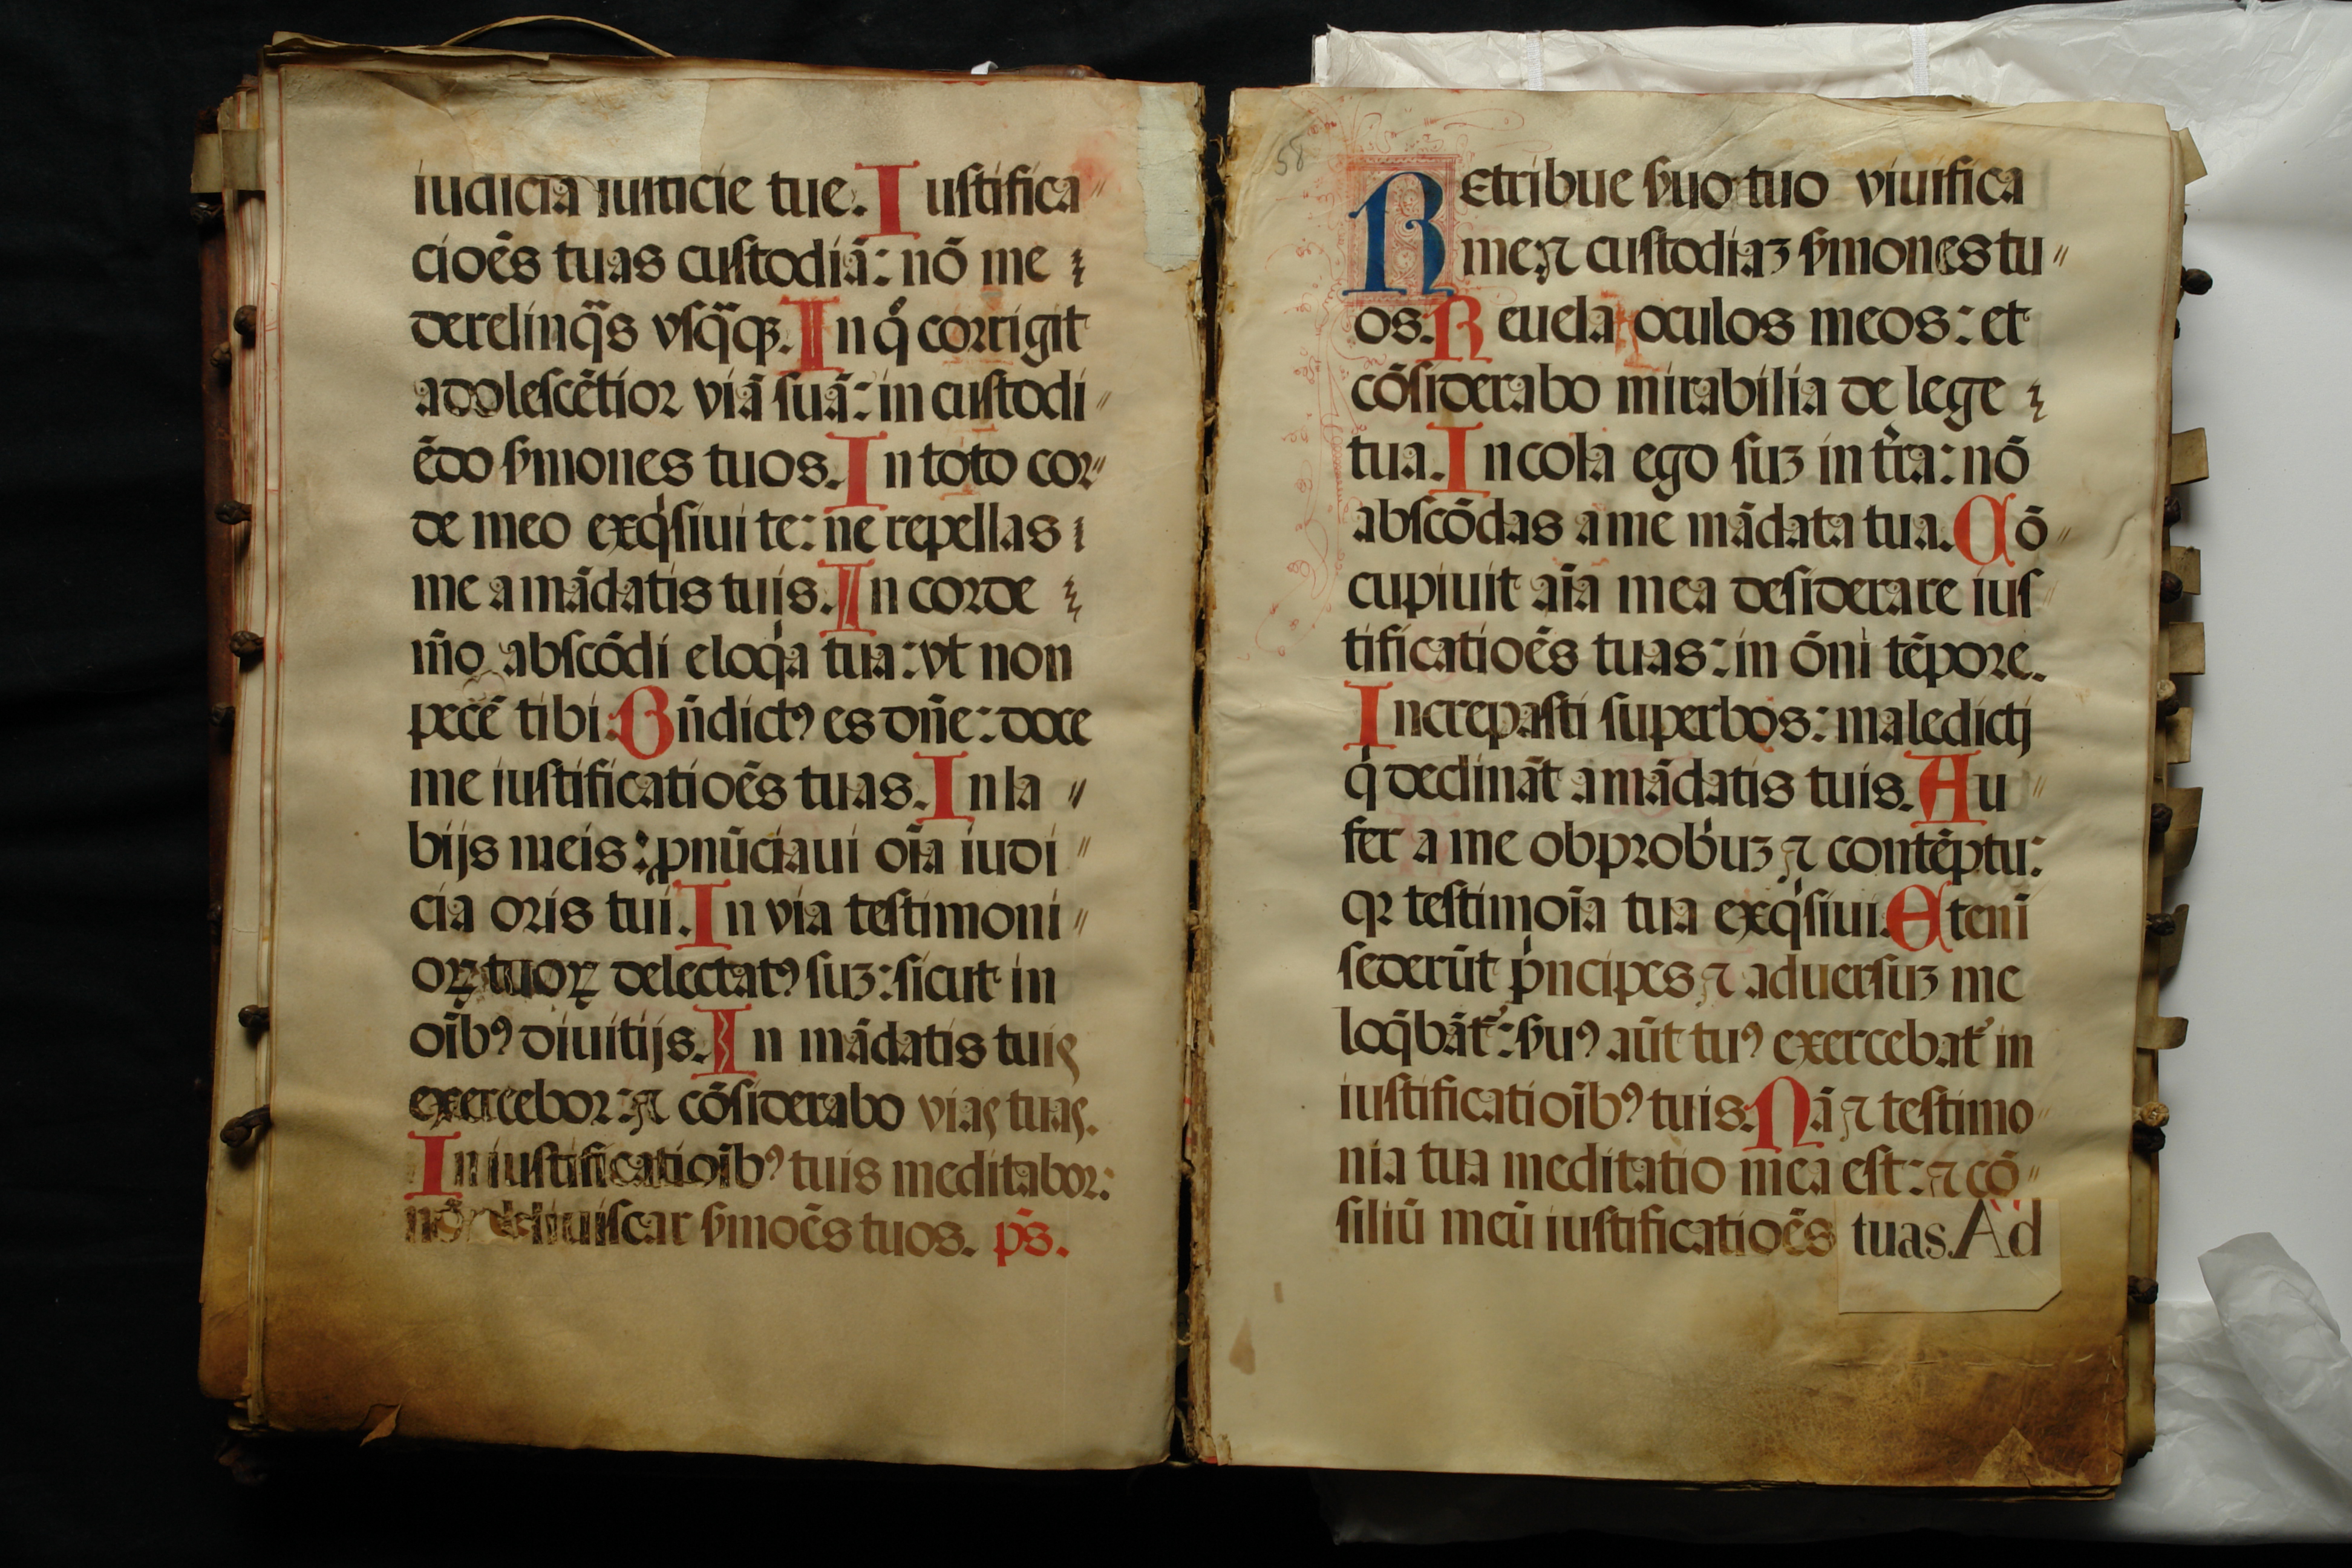 iudicia iusticie tue. Iustifica〃
cioēs tuas custodiā: nō me
derelinq̄s vsq̄qꝫ. In q̊ corrigit
adolescētior viā suā: in custodi〃
ēdo ẜmones tuos. In toto cor〃
de meo exqͥsiui te: ne repellas
me a mādatis tuis. In corde
m̄o abscōdi eloqͥa tua: vt non
peccē tibi. Bn̄dictꝰ es dn̄e: doce
me iustificatioēs tuas. In la〃
bijs meis: ꝓnūciaui oīa iudi〃
cia oris tui. In via testimoni〃
oꝝ tuoꝝ delectatꝰ suꝫ: sicut in
oībꝰ diuitijs. In mādatis tuis
exercebor: ⁊ cōsiderabo vias tuas.
In iustificatioībꝰ tuis meditabor:
nō obliuiscar ẜmoēs tuos. pś.
58
Retribue ẜuo tuo viuifica
me ⁊ custodiaꝫ ẜmones tu〃
os. Reuela oculos meos: et
cōsiderabo mirabilia de lege
tua. Incola ego suꝫ in tr̄a: nō
abscōdas a me mādata tua. Cō〃
cupiuit aīa mea desiderare ius〃
tificatioēs tuas: in ōni tēpore.
Increpasti superbos: maledicti
qͥ declināt a mādatis tuis. Au〃
fer a me obprobͥuꝫ ⁊ contēptu:
qꝛ testimoīa tua exqͥsiui. Eteni
sederūt pͥncipes ⁊ aduersuꝫ me
loq̄bātᷣ: ẜuꝰ aūt tuꝰ exercebatᷣ in
iustificatioībꝰ tuis. Nā ⁊ testimo〃
nia tua meditatio mea est: ⁊ cō〃
siliū meū iustificatioēs tuas. Ad